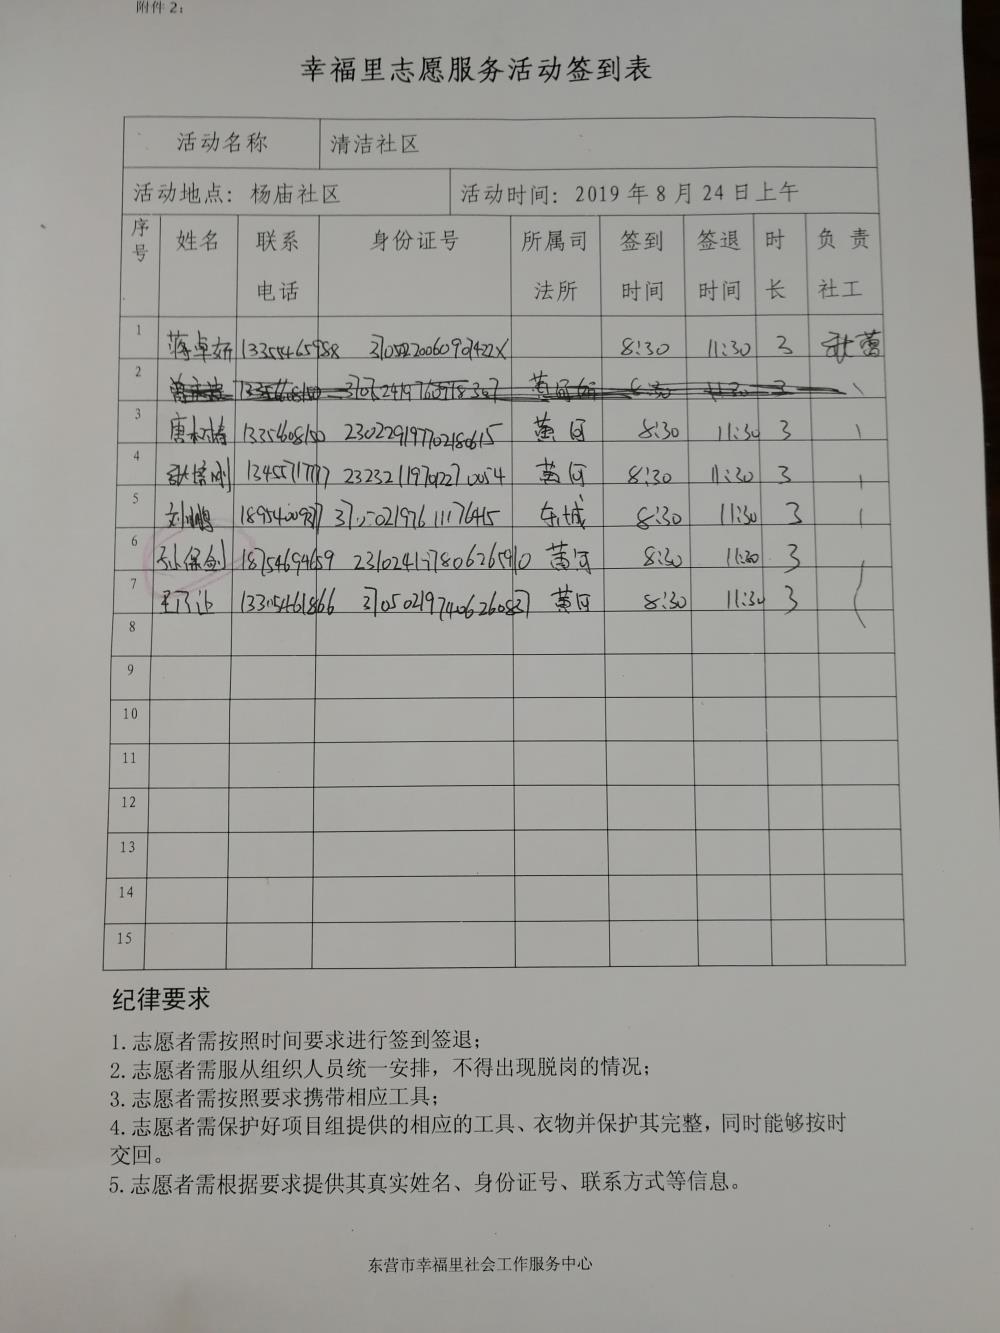 附件2：
幸福里志愿服务活动签到表
活动名称 清洁社区
活动地点：杨庙社区 活动时间：2019年8月24日上午
序号 姓名 联系电话 身份证号 所属司法所 签到时间 签退时间 时长 负责社工
1 蒋卓妍 13355465988 8:30 11:30 3
2
3 13354608150 230229197702180615 黄河 8:30 11:30 3
4 13455717177 黄河 8:30 11:30 3
5 刘鹏 东城 8:30 11:30 3
6 孙保剑 18754694659 黄河 8:30 11:30 3
7 13305461866 370502197406260837 黄河 8:30 11:30 3
8
9
10
11
12
13
14
15
纪律要求
1.志愿者需按照时间要求进行签到签退；
2.志愿者需服从组织人员统一安排，不得出现脱岗的情况；
3.志愿者需按照要求携带相应工具；
4.志愿者需保护好项目组提供的相应的工具、衣物并保护其完整，同时能够按时
交回。
5.志愿者需根据要求提供其真实姓名、身份证号、联系方式等信息。
东营市幸福里社会工作服务中心